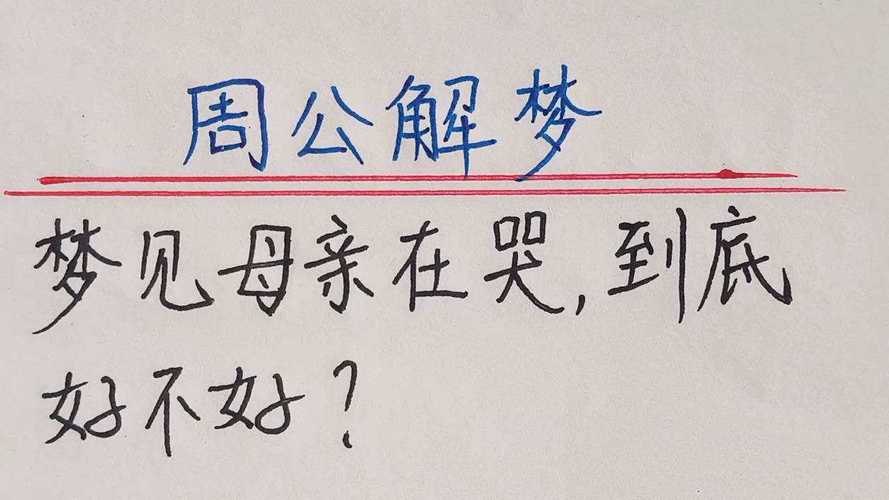 周公解梦
梦见母亲在哭,到底
好不好?